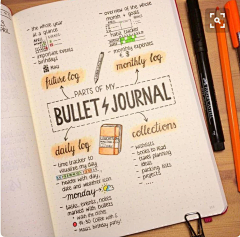 - the whole year
at a glance
- important events
- birthdays
- overview of the whole
month + goals
- habit tracker
- monthly expenses
future log
monthly log
PARTS OF MY
BULLET JOURNAL
daily log
collections
- time tracker to
visualize my day
- header with day,
date and weekly icon
- monday -
- tasks, events, notes
marked with bullets
- wishlists
- books to read
- travel planning
- ideas
- packing lists
- projects
- ....